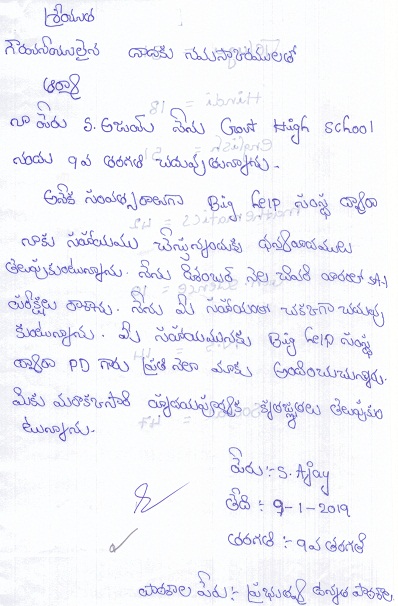 శ్రీయుత
గౌరవనీయులైన దాతకు నమస్కారములతో
నా పేరు S. అజయ్ నేను Govt High school
నందు 9వ తరగతి చదువుతున్నాను.
అనేక సంవత్సరాలుగా Big help సంస్థ ద్వారా
నాకు సహాయము చేస్తున్నందుకు ధన్యవాదములు
తెలుపుకుంటున్నాను. నేను డిశంబర్ నెల చివరి వారంలో SA-1
పరీక్షలు రాశాను. నేను మీ సహాయంతో చక్కగా చదువు
కుంటున్నాను. మీ సహాయమునకు Big help సంస్థ
ద్వారా PD గారు ప్రతి నెలా మాకు అందించుచున్నారు.
మీకు మరొకసారి హృదయపూర్వక కృతజ్ఞతలు తెలుపుకుం
టున్నాను.
పేరు :- S. Ajay
తేది :- 9-1-2019
తరగతి :- 9వ తరగతి
పాఠశాల పేరు :- ప్రభుత్వ ఉన్నత పాఠశాల